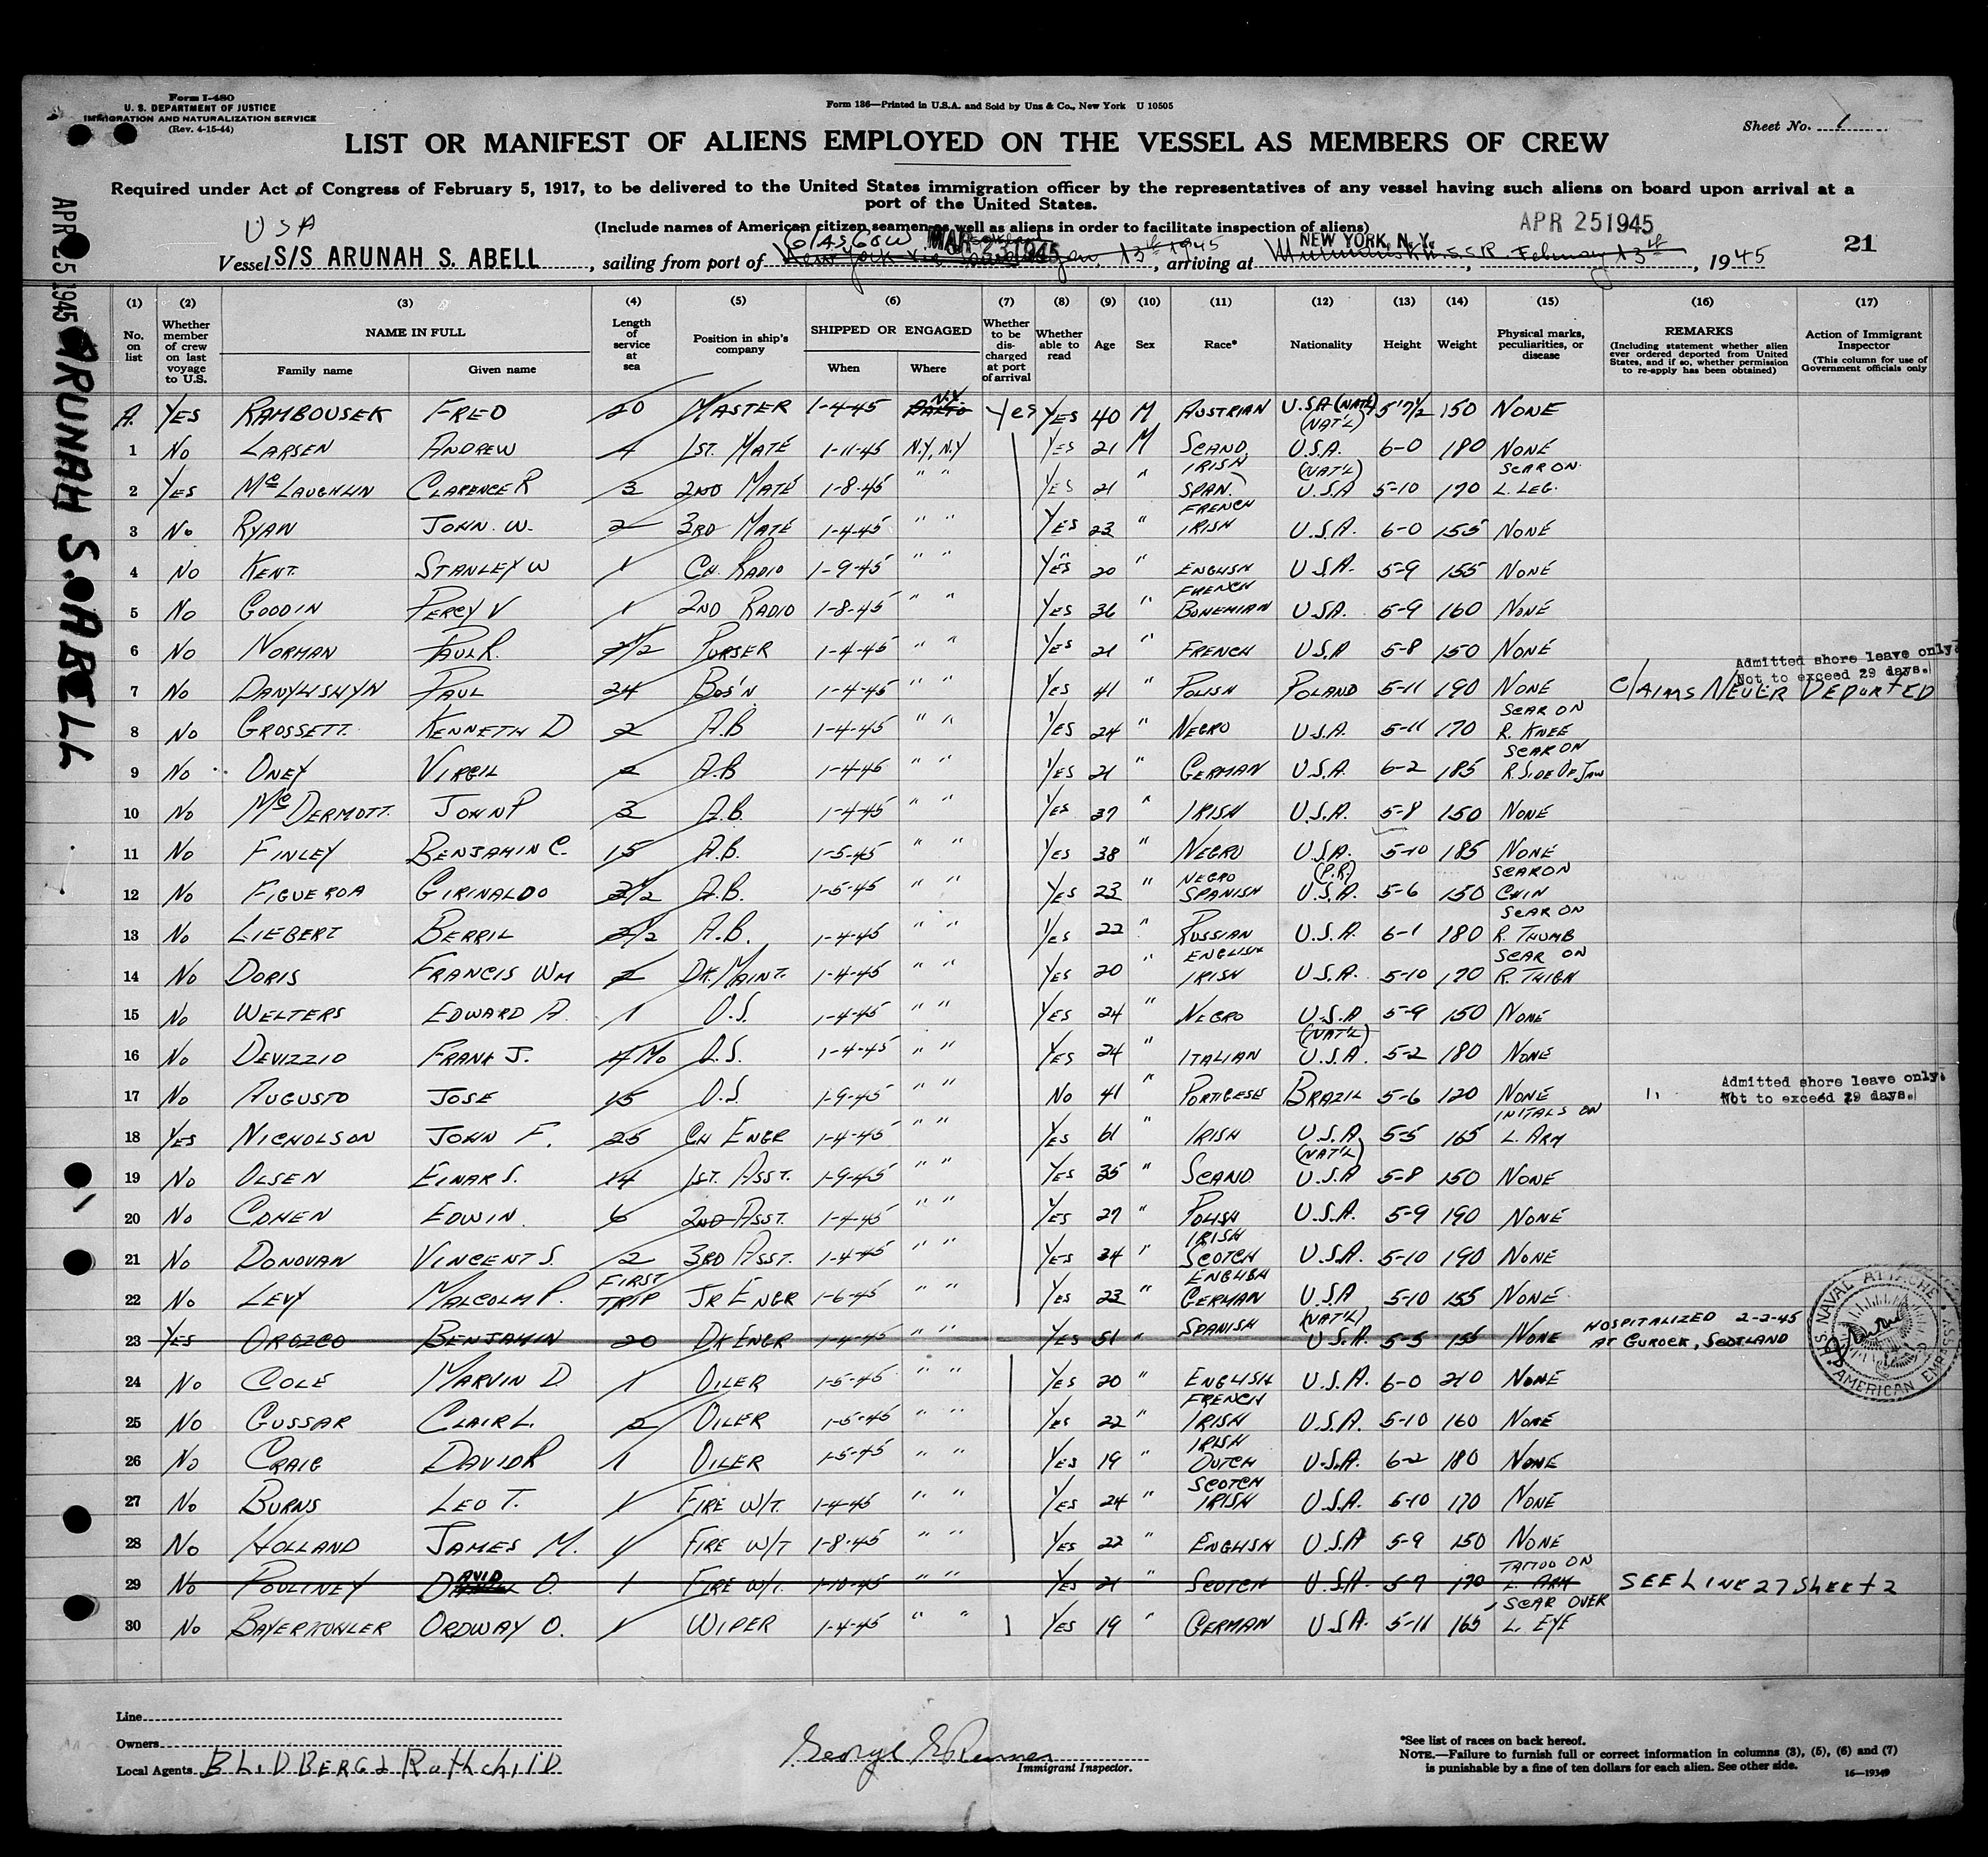 Form I-480
U. S. DEPARTMENT OF JUSTICE
IMMIGRATION AND NATURALIZATION SERVICE
(Rev. 4-15-44)
Form 186—Printed in U.S.A. and Sold by Unz & Co., New York U 10505
Sheet No. 1
LIST OR MANIFEST OF ALIENS EMPLOYED ON THE VESSEL AS MEMBERS OF CREW
Required under Act of Congress of February 5, 1917, to be delivered to the United States immigration officer by the representatives of any vessel having such aliens on board upon arrival at a
port of the United States.
(Include names of American citizen seamen as well as aliens in order to facilitate inspection of aliens)
USA
APR 25 1945
GLASGOW MAR 23 1945
NEW YORK, N. Y.
Vessel S/S ARUNAH S. ABELL, sailing from port of New York Jan. 13th 1945, arriving at Murmansk U.S.S.R. February 13th, 1945
21
APR 25 1945 ARUNAH S. ABELL
(1) (2) (3) (4) (5) (6) (7) (8) (9) (10) (11) (12) (13) (14) (15) (16) (17)
No. on list
Whether member of crew on last voyage to U.S.
NAME IN FULL
Family name
Given name
Length of service at sea
Position in ship's company
SHIPPED OR ENGAGED
When
Where
Whether to be discharged at port of arrival
Whether able to read
Age
Sex
Race*
Nationality
Height
Weight
Physical marks, peculiarities, or disease
REMARKS
(Including statement whether alien ever ordered deported from United States, and if so, whether permission to re-apply has been obtained)
Action of Immigrant Inspector
(This column for use of Government officials only
A. YES RAMBOUSEK FRED 20 MASTER 1-4-45 N.Y. Yes YES 40 M AUSTRIAN U.S.A (NAT'L) 5'7½ 150 NONE
1 No LARSEN ANDREW 4 1ST. MATE 1-11-45 N.Y, N.Y YES 21 M SCAND. (NAT'L) U.S.A. 6-0 180 NONE
2 YES McLAUGHLIN CLARENCE R 3 2ND MATE 1-8-45 " " YES 21 " IRISH SPAN. (NAT'L) U.S.A 5-10 170 SCAR ON L. LEG.
3 No RYAN JOHN. W. 2 3RD MATE 1-4-45 " " YES 23 " FRENCH IRISH U.S.A. 6-0 155 NONE
4 No KENT. STANLEY W 1 CH. RADIO 1-9-45 " " YES 20 " ENGLISH U.S.A. 5-9 155 NONE
5 No GOODIN PERCY V 1 2ND RADIO 1-8-45 " " YES 36 " FRENCH BOHEMIAN USA. 5-9 160 NONE
6 No NORMAN PAUL R. 2½ PURSER 1-4-45 " " YES 21 " FRENCH U.S.A 5-8 150 NONE
7 No DANYLISHYN PAUL 24 BOS'N 1-4-45 " " YES 41 " POLISH POLAND 5-11 190 NONE CLAIMS NEVER DEPORTED Admitted shore leave only. Not to exceed 29 days.
8 No GROSSETT. KENNETH D 2 A.B 1-4-45 " " YES 24 " NEGRO U.S.A. 5-11 170 SCAR ON R. KNEE
9 No ONEY VIRGIL 2 A.B 1-4-45 YES 21 " GERMAN U.S.A. 6-2 185 SCAR ON R. SIDE OF JAW
10 No McDERMOTT. JOHN P 3 A.B. 1-4-45 " " YES 37 " IRISH U.S.A. 5-8 150 NONE
11 No FINLEY BENJAMIN C. 15 A.B. 1-5-45 " " YES 38 " NEGRO U.S.A. 5-10 185 NONE
12 No FIGUEROA GIRINALDO 3½ A.B. 1-5-45 " " YES 23 " NEGRO SPANISH (P.R.) U.S.A. 5-6 150 SCAR ON CHIN
13 No LIEBERT BERRIL 2½ A.B. 1-4-45 " " YES 22 " RUSSIAN U.S.A. 6-1 180 SCAR ON R. THUMB
14 No DORIS FRANCIS WM 2 DK. MAINT. 1-4-45 " " YES 20 " ENGLISH IRISH U.S.A. 5-10 170 SCAR ON R. THIGH
15 No WELTERS EDWARD A. 1 O.S. 1-4-45 " " YES 24 " NEGRO U.S.A 5-9 150 NONE
16 No DEVIZZIO FRANK J. 4 Mo O.S. 1-4-45 " " YES 24 " ITALIAN (NAT'L) U.S.A. 5-2 180 NONE
17 No AUGUSTO JOSE 15 O.S 1-9-45 " " No 41 " PORTIGESE BRAZIL 5-6 120 NONE " Admitted shore leave only. Not to exceed 29 days.
18 YES NICHOLSON JOHN F. 25 CH ENGR 1-4-45 " " YES 61 " IRISH U.S.A 5-5 165 INITALS ON L. ARM
19 No OLSEN EINAR S. 14 1ST. ASST. 1-9-45 " " YES 35 " SCAND (NAT'L) U.S.A 5-8 150 NONE
20 No COHEN EDWIN. 6 2ND ASST. 1-4-45 " " YES 27 " POLISH U.S.A. 5-9 190 NONE
21 No DONOVAN VINCENT S. 2 3RD ASST. 1-4-45 " " YES 34 " IRISH SCOTCH U.S.A. 5-10 190 NONE
22 No LEVY MALCOLM P. FIRST TRIP JR ENGR 1-6-45 " " YES 23 " ENGLISH GERMAN U.S.A 5-10 155 NONE
23 YES OROZCO BENJAMIN 20 DK ENGR 1-4-45 " " YES 51 " SPANISH (NAT'L) U.S.A. 5-5 155 NONE HOSPITALIZED 2-2-45 AT GUROCK, SCOTLAND
24 No COLE MARVIN D. 1 OILER 1-5-45 " " YES 20 " ENGLISH U.S.A. 6-0 210 NONE
25 No GUSSAR CLAIR L. 2 OILER 1-5-45 " " YES 22 " FRENCH IRISH U.S.A. 5-10 160 NONE
26 No CRAIG DAVID R 1 OILER 1-5-45 " " YES 19 " IRISH DUTCH U.S.A. 6-2 180 NONE
27 No BURNS LEO T. 1 FIRE W/T. 1-4-45 " " YES 24 " SCOTCH IRISH U.S.A. 5-10 170 NONE
28 No HOLLAND JAMES M. 4 FIRE W/T 1-8-45 " " YES 22 " ENGLISH U.S.A 5-9 150 NONE
29 No POULINEY DAVID O. 1 FIRE W/T. 1-10-45 " " YES 21 " SCOTCH U.S.A. 5-7 170 TATTOO ON L. ARM SEE LINE 27 SHEET 2
30 No BAYERKOHLER ORDWAY O. 1 WIPER 1-4-45 " " YES 19 " GERMAN U.S.A. 5-11 165 SCAR OVER L. EYE
U.S. NAVAL ATTACHE AMERICAN EMBASSY
Line
Owners
Local Agents BLIDBERG & RothchilD
Immigrant Inspector.
*See list of races on back hereof.
NOTE.—Failure to furnish full or correct information in columns (3), (5), (6) and (7)
is punishable by a fine of ten dollars for each alien. See other side.
16—19349